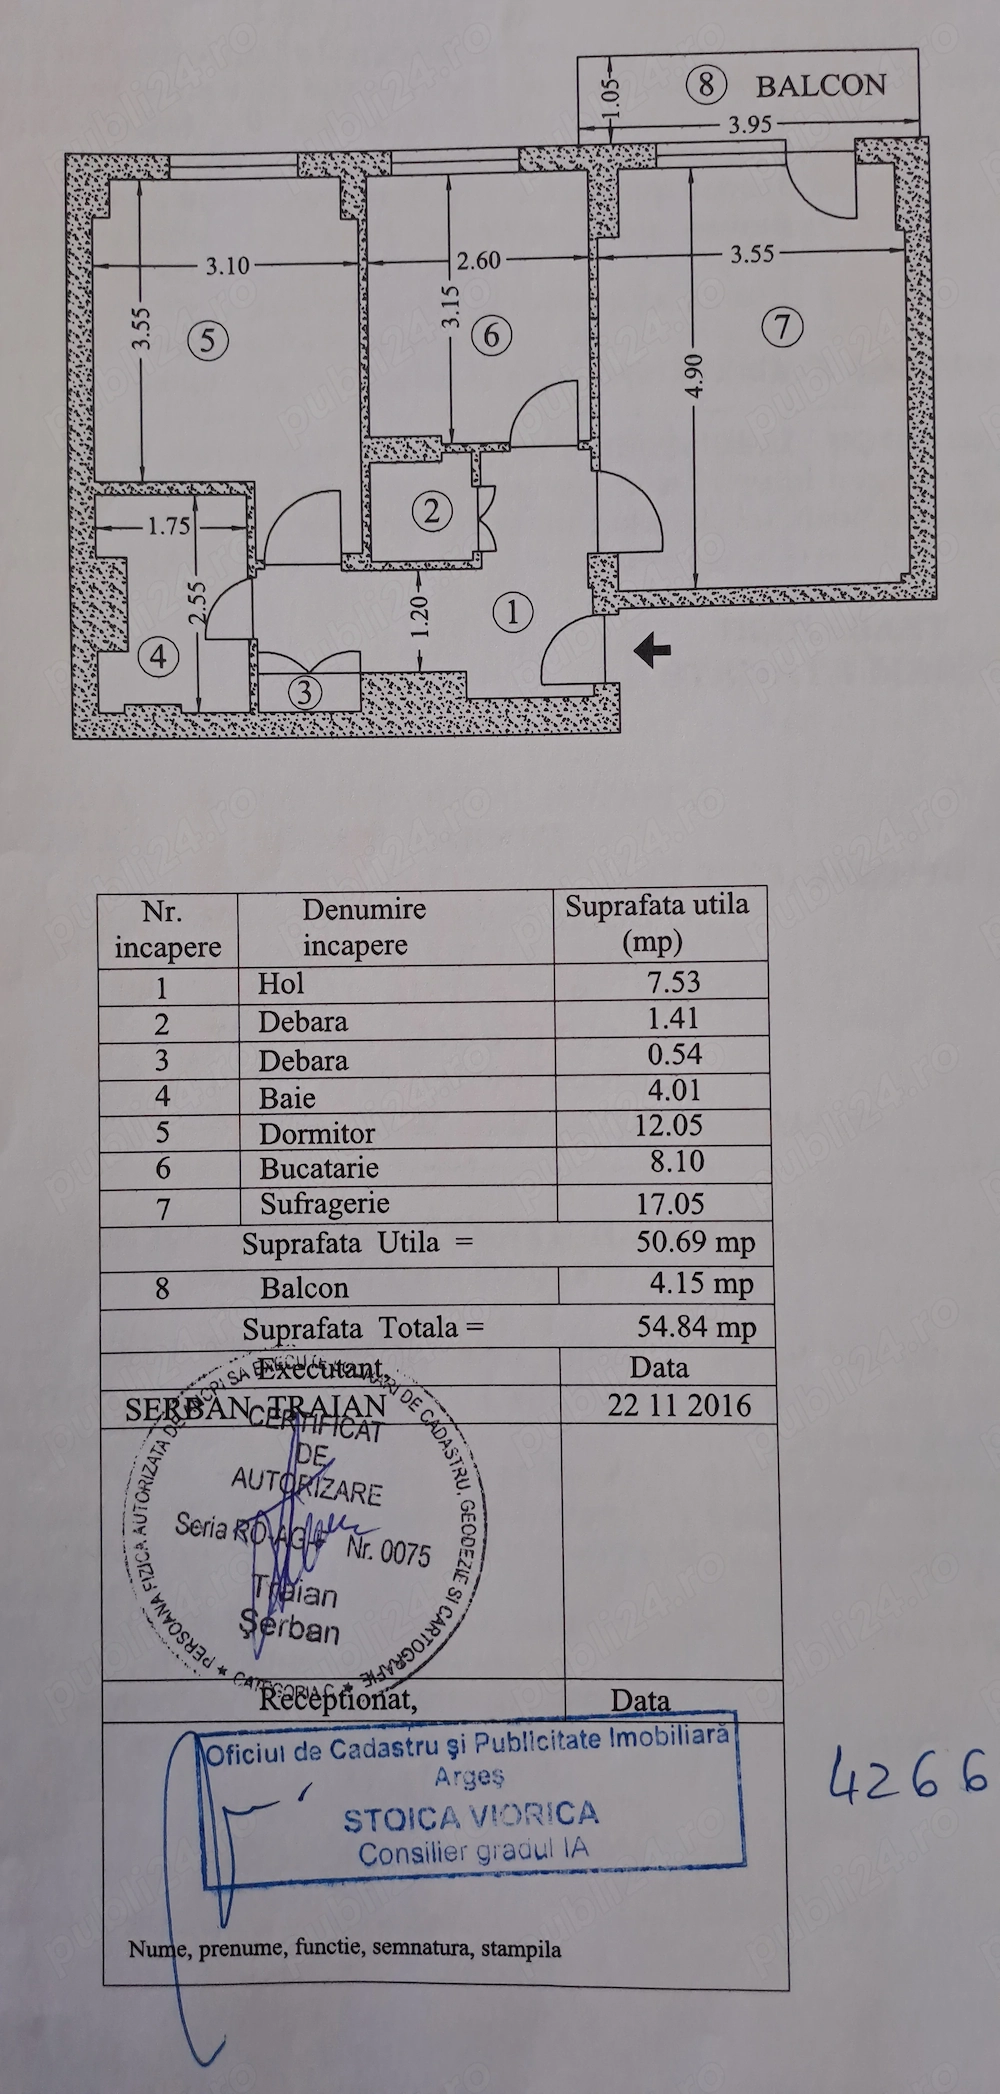 8 BALCON
1.05
3.95
3.10
2.60
3.55
3.55
3.15
4.90
5
6
7
2
1.75
2.55
1.20
1
4
3
Nr. incapere Denumire incapere Suprafata utila (mp)
1 Hol 7.53
2 Debara 1.41
3 Debara 0.54
4 Baie 4.01
5 Dormitor 12.05
6 Bucatarie 8.10
7 Sufragerie 17.05
Suprafata Utila = 50.69 mp
8 Balcon 4.15 mp
Suprafata Totala = 54.84 mp
Executant, Data
SERBAN TRAIAN 22 11 2016
CERTIFICAT
DE
AUTORIZARE
Seria RO-AG-F Nr. 0075
Traian
Şerban
PERSOANA FIZICA AUTORIZATA SA EXECUTE DE CADASTRU, GEODEZIE SI CARTOGRAFIE
CATEGORIA C
Receptionat, Data
Oficiul de Cadastru şi Publicitate Imobiliară
Argeş
STOICA VIORICA
Consilier gradul IA
4266
Nume, prenume, functie, semnatura, stampila
publi24.ro